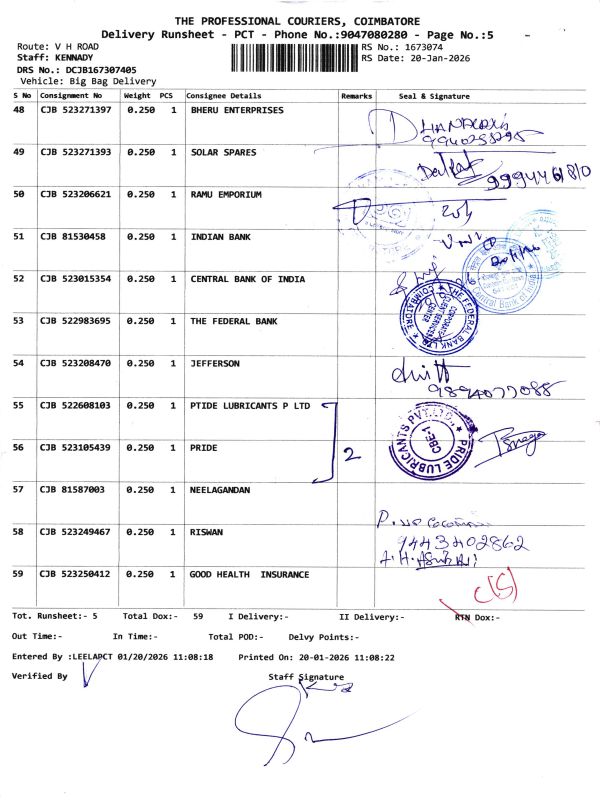 THE PROFESSIONAL COURIERS, COIMBATORE
Delivery Runsheet - PCT - Phone No.:9047080280 - Page No.:5
Route: V H ROAD RS No.: 1673074
Staff: KENNADY RS Date: 20-Jan-2026
DRS No.: DCJB167307405
Vehicle: Big Bag Delivery
S No Consignment No Weight PCS Consignee Details Remarks Seal & Signature
48 CJB 523271397 0.250 1 BHERU ENTERPRISES
49 CJB 523271393 0.250 1 SOLAR SPARES
50 CJB 523206621 0.250 1 RAMU EMPORIUM
51 CJB 81530458 0.250 1 INDIAN BANK
52 CJB 523015354 0.250 1 CENTRAL BANK OF INDIA
Central Bank of India
53 CJB 522983695 0.250 1 THE FEDERAL BANK
THE FEDERAL BANK LTD
COIMBATORE
54 CJB 523208470 0.250 1 JEFFERSON
9894077088
55 CJB 522608103 0.250 1 PTIDE LUBRICANTS P LTD
56 CJB 523105439 0.250 1 PRIDE 2
PRIDE LUBRICANTS PVT. LTD.
CBE-1
57 CJB 81587003 0.250 1 NEELAGANDAN
58 CJB 523249467 0.250 1 RISWAN
9443402862
59 CJB 523250412 0.250 1 GOOD HEALTH INSURANCE
Tot. Runsheet:- 5 Total Dox:- 59 I Delivery:- II Delivery:- RTN Dox:-
Out Time:- In Time:- Total POD:- Delvy Points:-
Entered By :LEELAPCT 01/20/2026 11:08:18 Printed On: 20-01-2026 11:08:22
Verified By Staff Signature